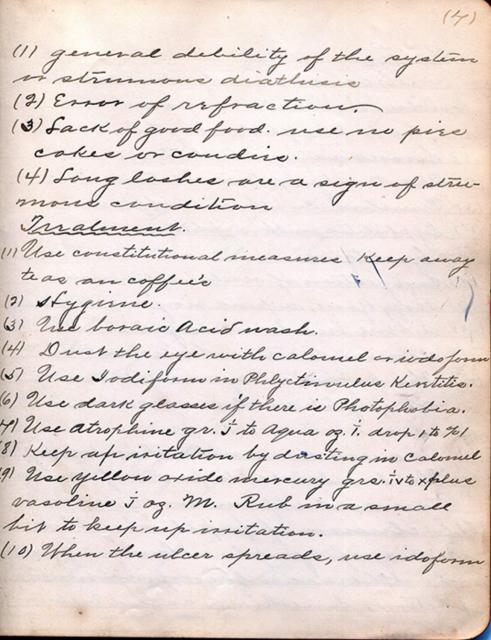 (4)
(1) general debility of the system
or strumous diathisis
(2) Error of refraction.
(3) Lack of good food. use no pies
cakes or candies.
(4) Long lashes are a sign of stru-
mous condition
Treatment.
(1) Use constitutional measures Keep away
teas an coffee's
(2) Hygine.
(3) Use boraic Acid wash.
(4) Dust the eye with calomel or iodoform
(5) Use Iodiform in Phlyctinulus Keritis.
(6) Use dark glasses if there is Photophobia.
(7) Use Atrophine gr. j to Aqua oz j. drop
(8) Keep up irritation by dusting in calomel
(9) Use yellow oxide mercury grs. iv to x plus
vasoline j oz. M. Rub in a small
bit to keep up irritation.
(10) When the ulcer spreads, use idoform